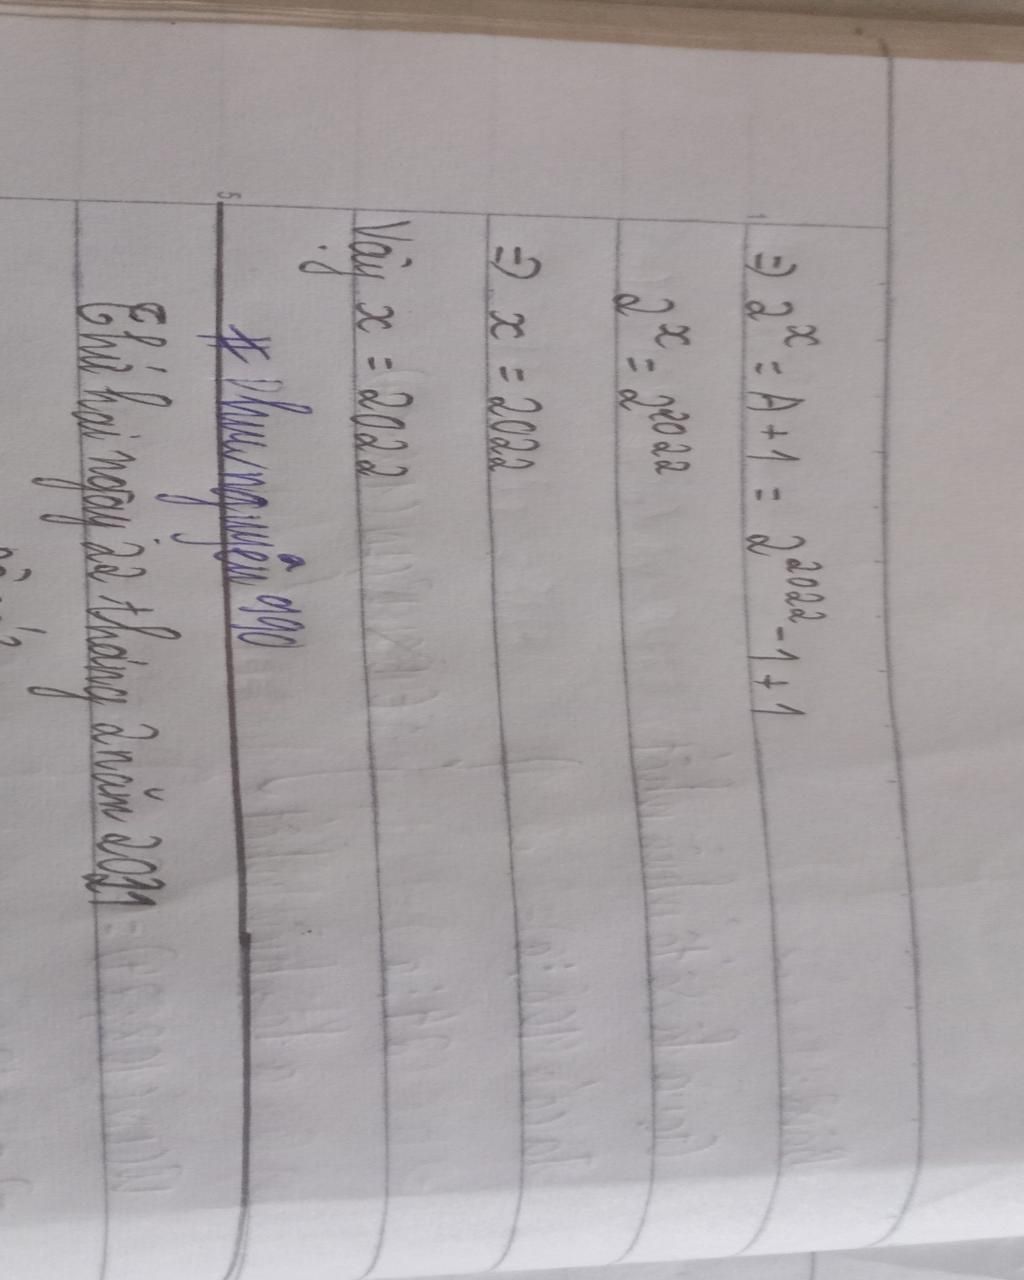 ⇒ 2^x = A + 1 = 2^2022 - 1 + 1
2^x = 2^2022
⇒ x = 2022
Vậy x = 2022
Thứ hai ngày 22 tháng 2 năm 2021